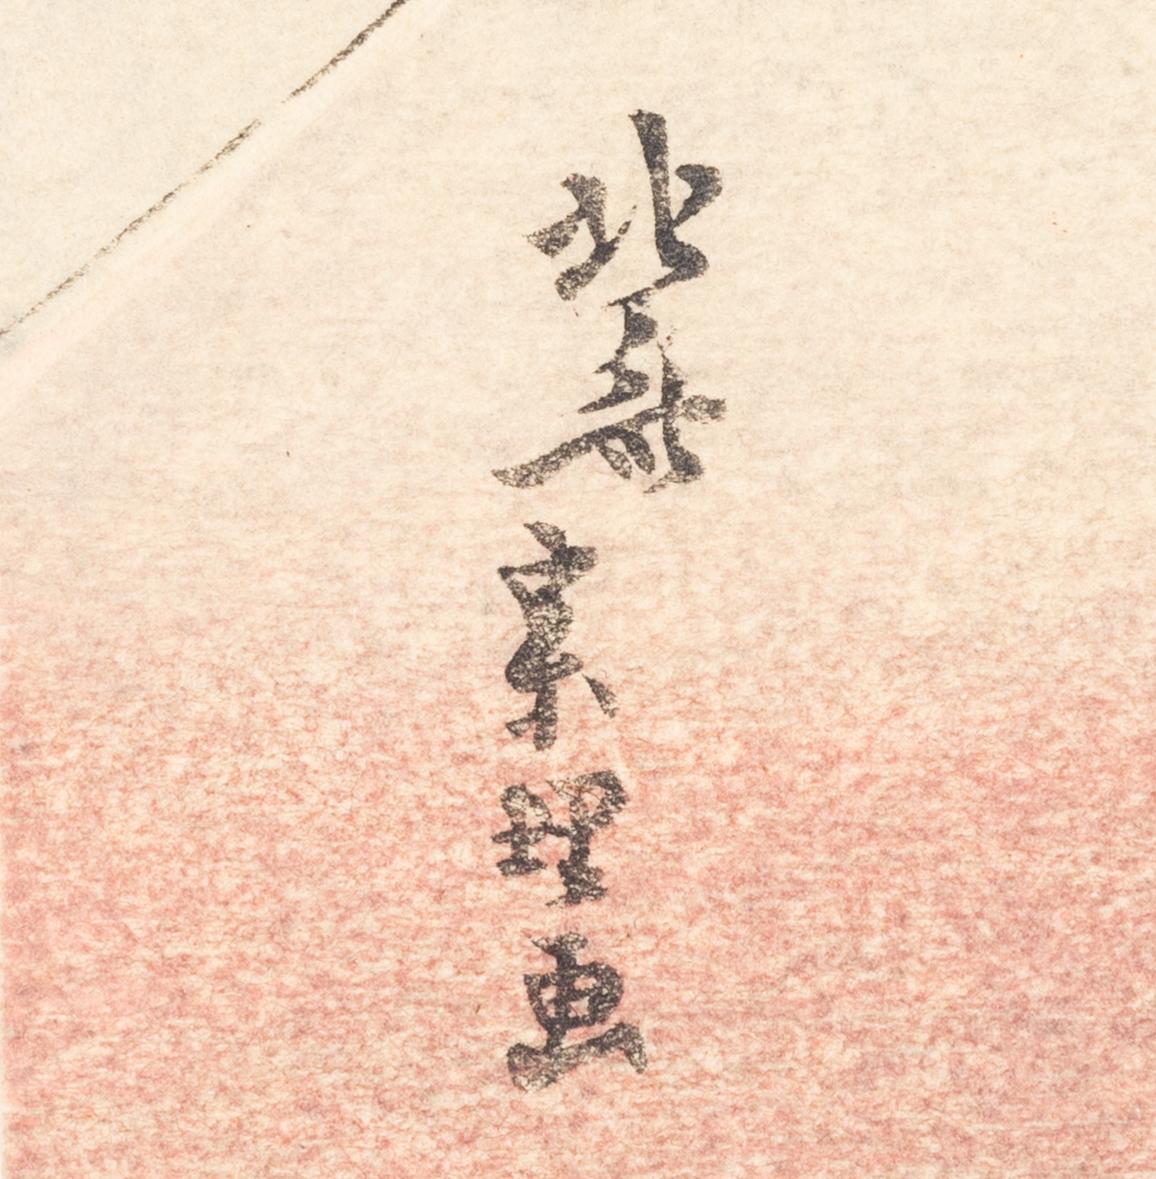 北斎宗理画